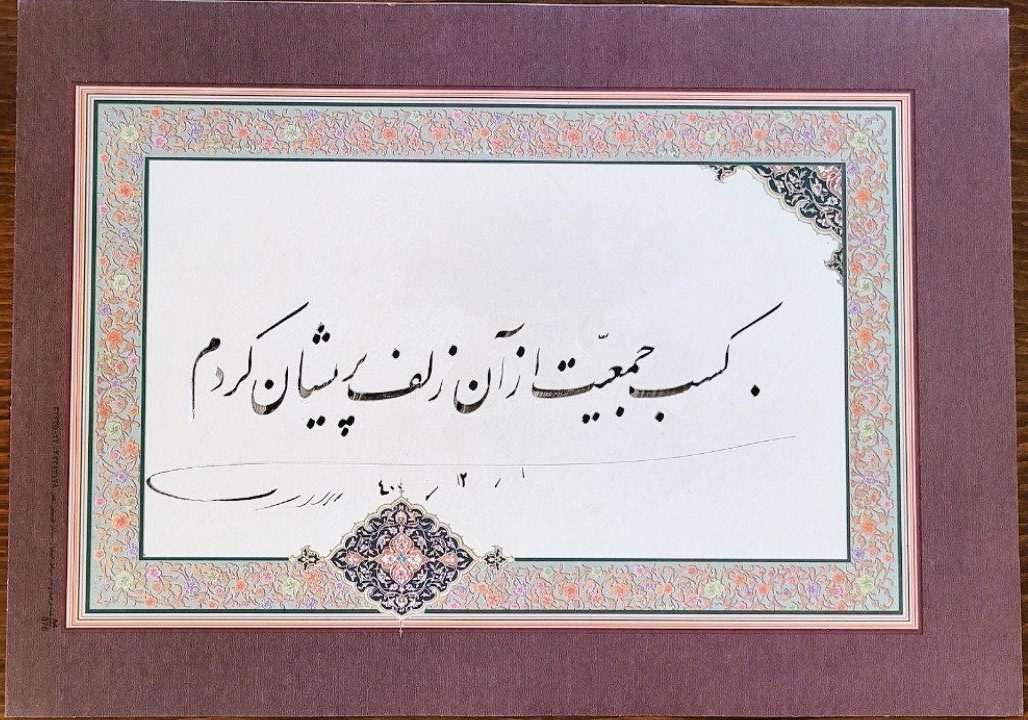 کسب جمعیّت از آن زلف پریشان کردم
۱ / ۱۲ / ۴۰۰